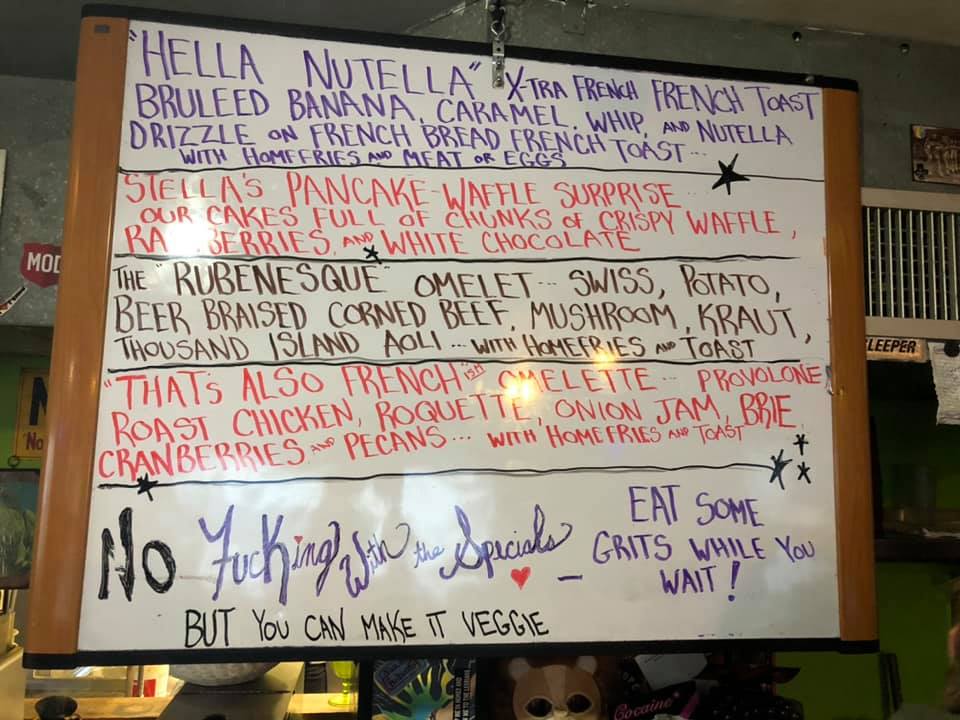 "HELLA NUTELLA" X-TRA FRENCH FRENCH TOAST
BRULEED BANANA, CARAMEL, WHIP, AND NUTELLA
DRIZZLE ON FRENCH BREAD FRENCH TOAST...
WITH HOMEFRIES AND MEAT OR EGGS
STELLA'S PANCAKE-WAFFLE SURPRISE...
OUR CAKES FULL OF CHUNKS OF CRISPY WAFFLE,
RASPBERRIES, AND WHITE CHOCOLATE
THE "RUBENESQUE" OMELET... SWISS, POTATO,
BEER BRAISED CORNED BEEF, MUSHROOM, KRAUT,
THOUSAND ISLAND AOLI... WITH HOMEFRIES AND TOAST
"THAT'S ALSO FRENCH" ISH OMELETTE... PROVOLONE
ROAST CHICKEN, ROQUETTE, ONION JAM, BRIE
CRANBERRIES AND PECANS... WITH HOMEFRIES AND TOAST
No Fucking With the Specials –
EAT SOME
GRITS WHILE YOU
WAIT!
BUT YOU CAN MAKE IT VEGGIE
MOD
LEEPER
N
No
Cocaine